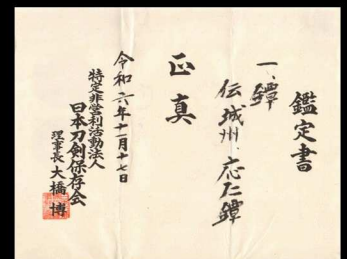 鑑定書
一、鐔
伝 城州・応仁鐔
正真
令和六年十一月十七日
特定非営利活動法人
日本刀剣保存会
理事長 大橋 博